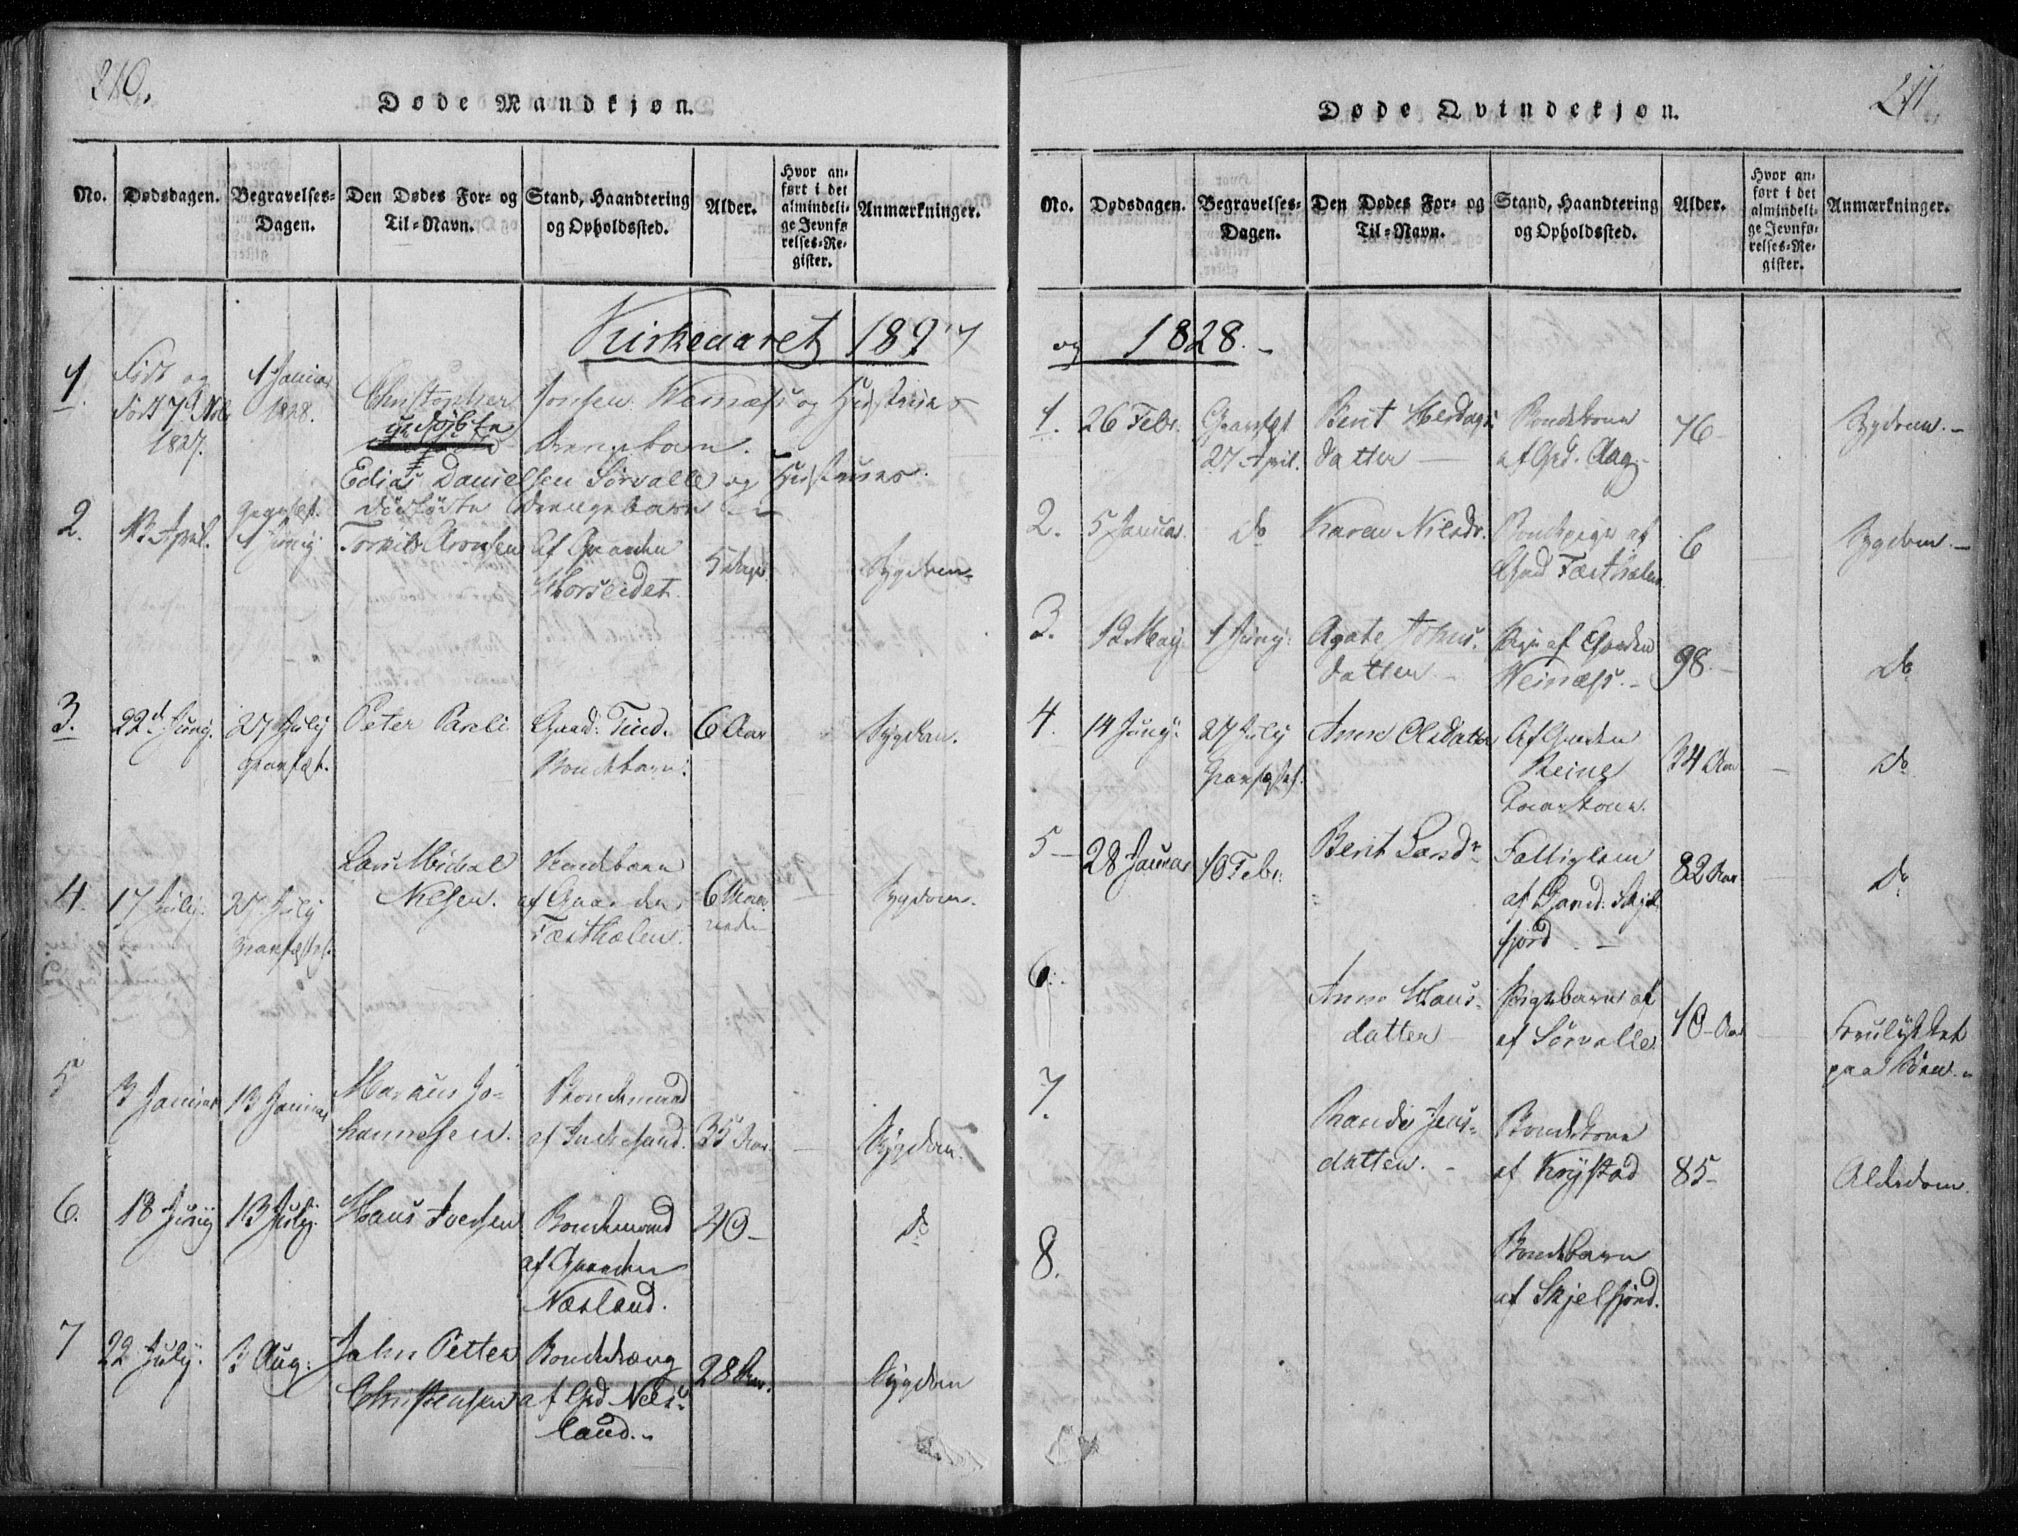 210.
Døde Mandkjøn.
No.
Dødsdagen.
Begravelses-
Dagen.
Den Dødes For- og
Til-Navn.
Stand, Haandtering
og Opholdssted.
Alder.
Hvor an-
ført i det
almindeli-
ge Jevnfø-
relses-Re-
gister.
Anmærkninger.
Kirkeaaret 1827
1.
Født og
1827.
1 Januar
1828.
Christopher Jonsen og Hustrues
udøbte
Drengebarn.
Edias Danielsen Sørvalle og Hustrues
dødfødte Drengebarn
2.
13 April.
1 Juny
Af Gaarden
Horseidet.
5 Dage
Sygdom.
3.
22d Juny.
27 July
Peter
Gaard: Tind.
Bondebarn.
6 Aar
Sygdom.
4.
17 July.
27 July
Lars Michael
Nielsen.
Bondebarn
af Gaarden
6 Maa-
neder
Sygdom.
5
3 Januar
13 Januar
Marcus Jo-
hannesen.
Bondemand
af
35 Aar.
Sygdom.
6.
18 Juny
13 July.
Hans Iversen
Bondemand
af Gaarden
Næsland.
40 –
do
7
22 July.
3 Aug:
John Petter
Christensen
Bondedreng
af Grd Næs-
land.
28 Aar.
Sygdom
211.
Døde Qvindekjøn.
No.
Dødsdagen.
Begravelses-
Dagen.
Den Dødes For- og
Til-Navn.
Stand, Haandtering
og Opholdssted.
Alder.
Hvor an-
ført i det
almindeli-
ge Jevnfø-
relses-Re-
gister.
Anmærkninger.
og 1828. –
1.
26 Febr.
27 April.
Berit
datter –
Bondekone
af Grd. Aag
76
Sygdom. –
2.
5 Januar
do
Karen Nilsdr.
Bondepige af
Gaard
6
Sygdom –
3.
12 May
1 Juny.
Agate Johns-
datter –
Pige af Gaarden
98.
do
4.
14 Juny.
27 July
Anne Olsdatter
Af Gaarden
Reine
34 Aar
do
5
28 Januar
10 Febr.
Berit Larsdr
Fattiglem
af Gaard: Skjel-
fjord –
82 Aar
do
6.
Anne Hans-
datter
Pigebarn af
af Sørvalle
10 Aar
Forulykket
paa Søen.
7.
Jens-
datter. –
Bondekone
af Krystad
85 –
Alderdom.
8.
Bondebarn
af Skjelfjord.